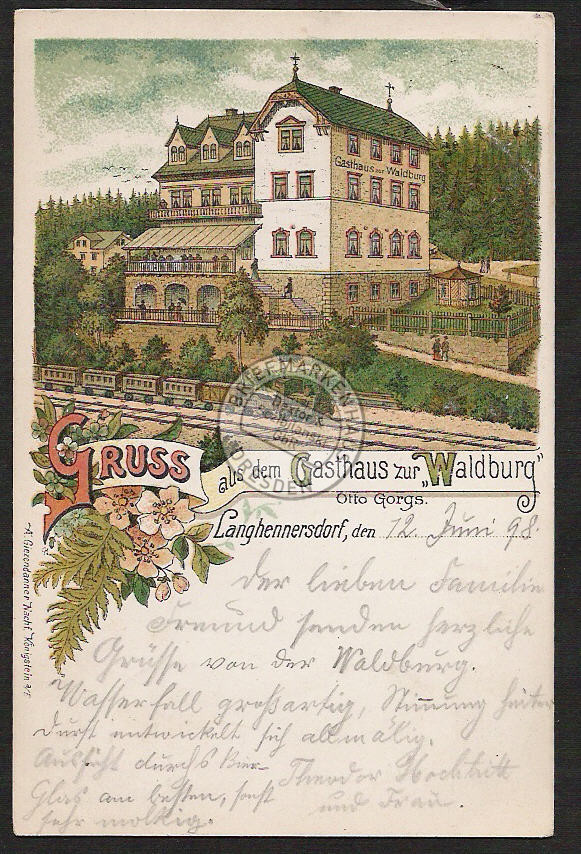 Gasthaus zur Waldburg
BRIEFMARKENHAUS
DRESDEN
GRUSS aus dem Gasthaus zur „Waldburg"
Otto Gorgs.
Langhennersdorf, den 12. Juni 98.
Der lieben Familie
Freund senden herzliche
Grüsse von der Waldburg.
Wasserfall großartig, Stimmung heiter
Durst entwickelt sich allmälig.
Aussicht durchs Bier-
Glas am besten, sonst
sehr molkig.
Theodor
und Frau.
A. Gierendanner Nachf. Königstein a/E.